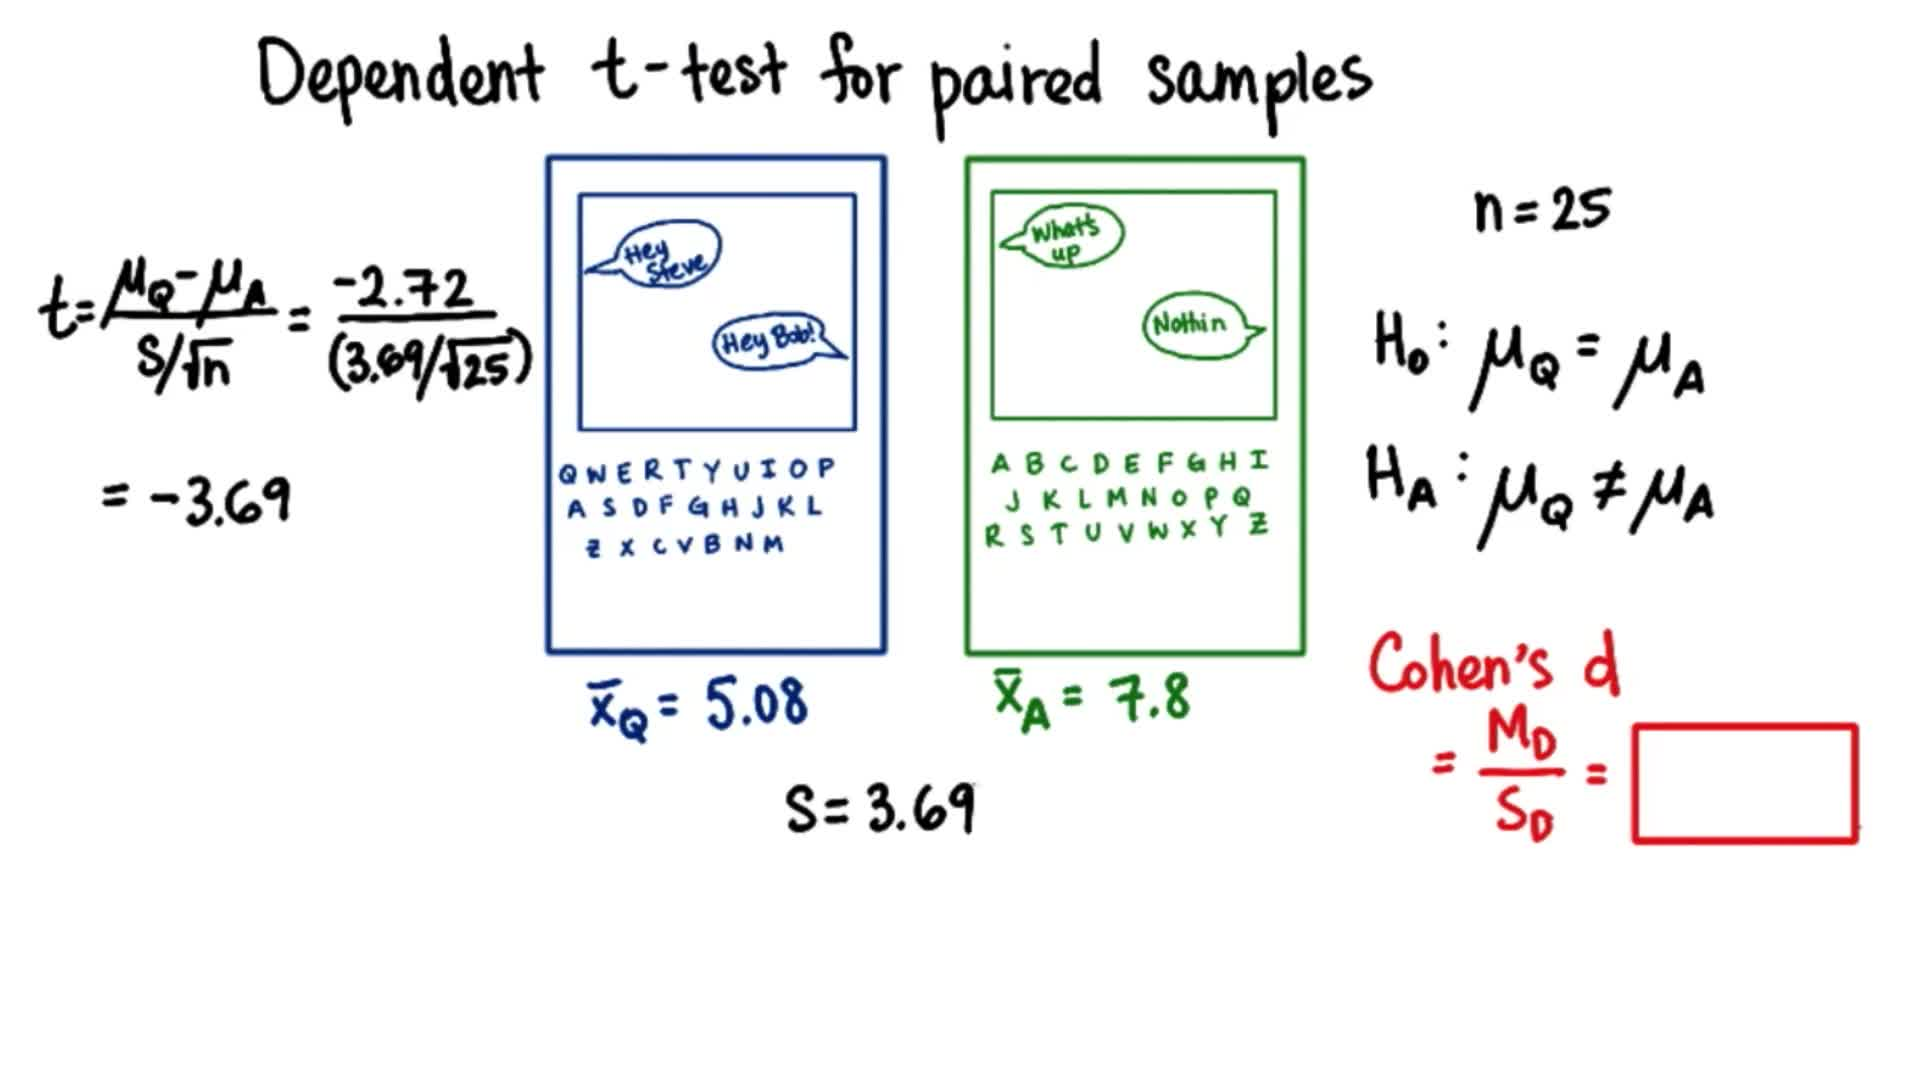 Dependent t-test for paired samples
t = μQ - μA / S/√n = -2.72 / (3.69/√25)
= -3.69
Hey Steve
Hey Bob!
Q W E R T Y U I O P
A S D F G H J K L
Z X C V B N M
x̄Q = 5.08
What's up
Nothin
A B C D E F G H I
J K L M N O P Q
R S T U V W X Y Z
x̄A = 7.8
S = 3.69
n = 25
H0: μQ = μA
HA: μQ ≠ μA
Cohen's d
= MD / SD =